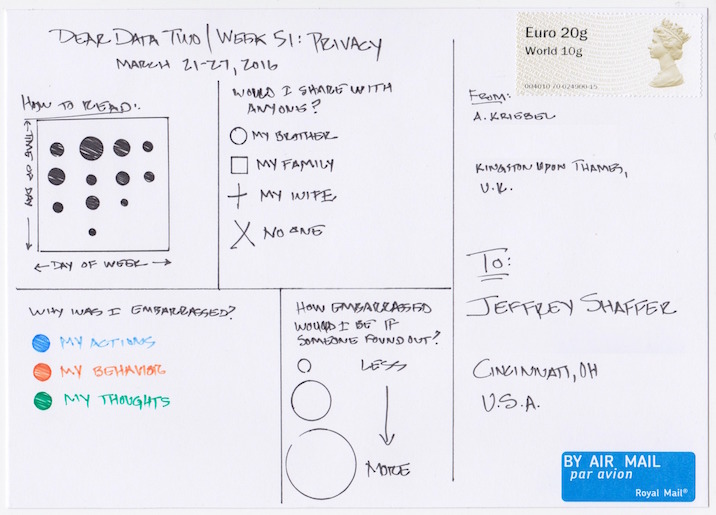 DEAR DATA TWO | WEEK 51: PRIVACY
MARCH 21-27, 2016
HOW TO READ:
TIME OF DAY
DAY OF WEEK
WOULD I SHARE WITH
ANYONE?
MY BROTHER
MY FAMILY
MY WIFE
NO ONE
WHY WAS I EMBARRASSED?
MY ACTIONS
MY BEHAVIOR
MY THOUGHTS
HOW EMBARRASSED
WOULD I BE IF
SOMEONE FOUND OUT?
LESS
MORE
Euro 20g
World 10g
004010 70-024900-15
FROM:
A. KRIEBEL
KINGSTON UPON THAMES,
U.K.
TO:
JEFFREY SHAFFER
CINCINNATI, OH
U.S.A.
BY AIR MAIL
par avion
Royal Mail®